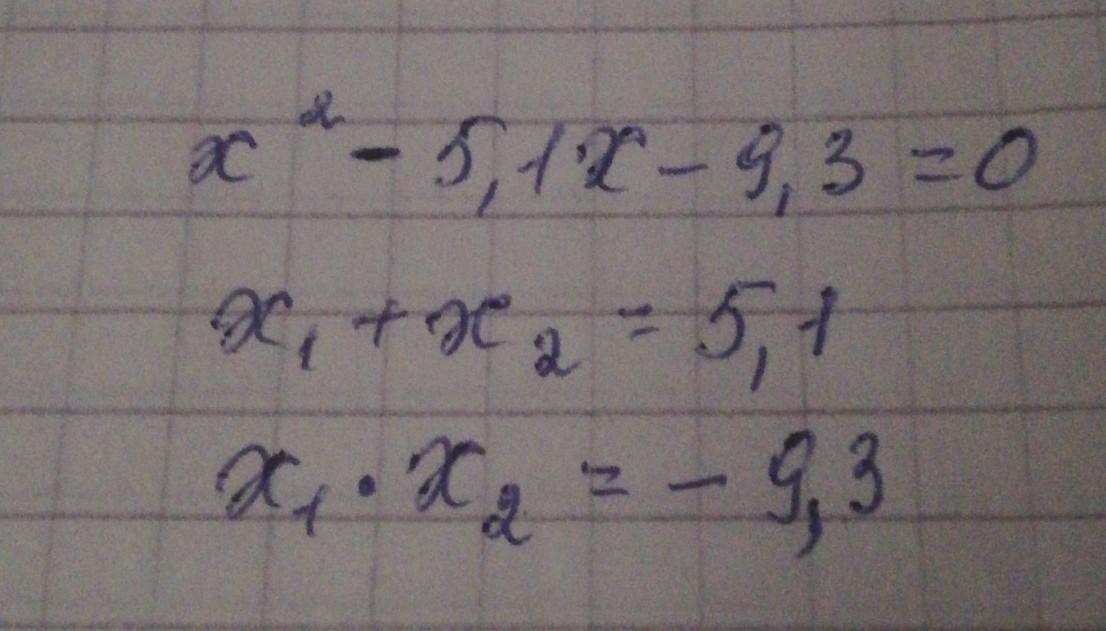 x² - 5,1x - 9,3 = 0
x₁ + x₂ = 5,1
x₁ · x₂ = - 9,3